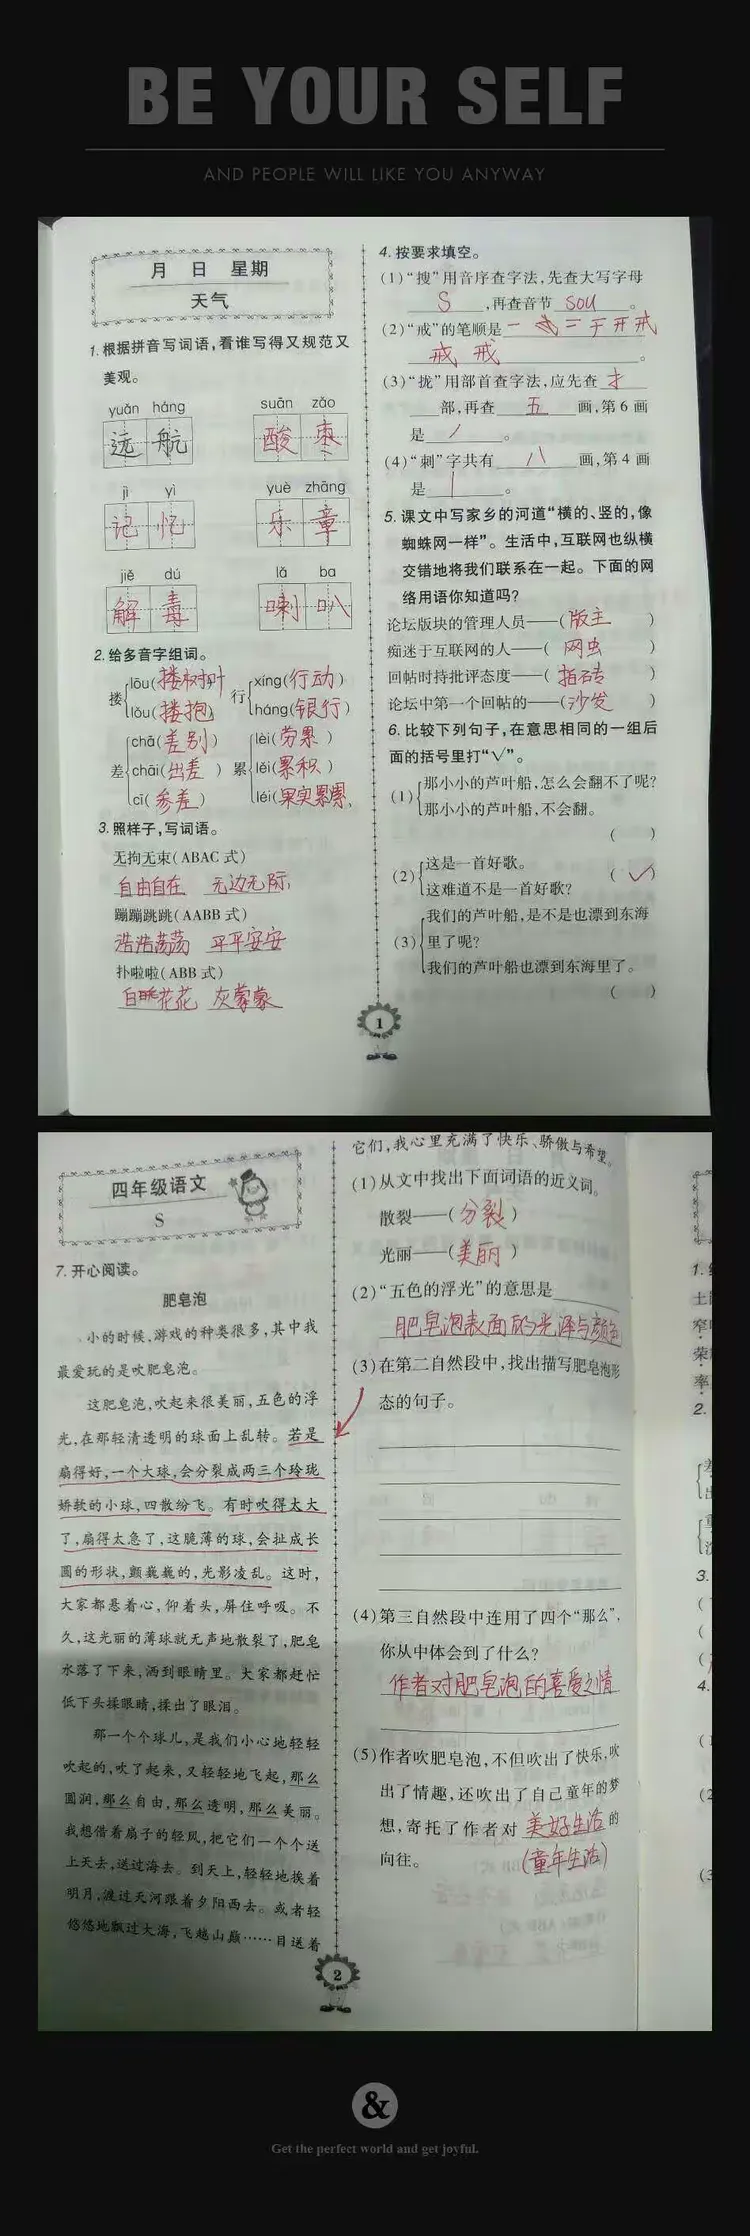 BE YOUR SELF
AND PEOPLE WILL LIKE YOU ANYWAY
月 日 星期
天气
1. 根据拼音写词语,看谁写得又规范又
美观。
yuǎn háng suān zǎo
远航 酸枣
jì yì yuè zhāng
记忆 乐章
jiě dú lǎ ba
解毒 喇叭
2. 给多音字组词。
搂 lōu(搂树叶) lǒu(搂抱)
行 xíng(行动) háng(银行)
差 chā(差别) chāi(出差) cī(参差)
累 lèi(劳累) lěi(累积) léi(果实累累)
3. 照样子,写词语。
无拘无束(ABAC 式)
自由自在 无边无际
蹦蹦跳跳(AABB 式)
浩浩荡荡 平平安安
扑啦啦(ABB 式)
白花花 灰蒙蒙
4. 按要求填空。
(1)“搜”用音序查字法,先查大写字母
S ,再查音节 sou 。
(2)“戒”的笔顺是 一 二 于 开 戒
戒 戒 。
(3)“拢”用部首查字法,应先查 扌
部,再查 五 画,第 6 画
是 丿 。
(4)“刺”字共有 八 画,第 4 画
是 丨 。
5. 课文中写家乡的河道“横的、竖的,像
蜘蛛网一样”。生活中,互联网也纵横
交错地将我们联系在一起。下面的网
络用语你知道吗?
论坛版块的管理人员——(版主)
痴迷于互联网的人——(网虫)
回帖时持批评态度——(拍砖)
论坛中第一个回帖的——(沙发)
6. 比较下列句子,在意思相同的一组后
面的括号里打“√”。
(1) 那小小的芦叶船,怎么会翻不了呢?
那小小的芦叶船,不会翻。
( )
(2) 这是一首好歌。
这难道不是一首好歌? (√)
(3) 我们的芦叶船,是不是也漂到东海
里了呢?
我们的芦叶船也漂到东海里了。
( )
1
四年级语文
S
7. 开心阅读。
肥皂泡
小的时候,游戏的种类很多,其中我
最爱玩的是吹肥皂泡。
这肥皂泡,吹起来很美丽,五色的浮
光,在那轻清透明的球面上乱转。若是
扇得好,一个大球,会分裂成两三个玲珑
娇软的小球,四散纷飞。有时吹得太大
了,扇得太急了,这脆薄的球,会扯成长
圆的形状,颤巍巍的,光影凌乱。这时,
大家都悬着心,仰着头,屏住呼吸。不
久,这光丽的薄球就无声地散裂了,肥皂
水落了下来,洒到眼睛里。大家都赶忙
低下头揉眼睛,揉出了眼泪。
那一个个球儿,是我们小心地轻轻
吹起的,吹了起来,又轻轻地飞起,那么
圆润,那么自由,那么透明,那么美丽。
我想借着扇子的轻风,把它们一个个送
上天去,送过海去。到天上,轻轻地挨着
明月,渡过天河跟着夕阳西去。或者轻
悠悠地飘过大海,飞越山巅……目送着
2
它们,我心里充满了快乐、骄傲与希望。
(1)从文中找出下面词语的近义词。
散裂——(分裂)
光丽——(美丽)
(2)“五色的浮光”的意思是
肥皂泡表面的光泽与颜色
(3)在第二自然段中,找出描写肥皂泡形
态的句子。
(4)第三自然段中连用了四个“那么”,
你从中体会到了什么?
作者对肥皂泡的喜爱之情
(5)作者吹肥皂泡,不但吹出了快乐,吹
出了情趣,还吹出了自己童年的梦
想,寄托了作者对 美好生活 的
向往。 (童年生活)
&
Get the perfect world and get joyful.